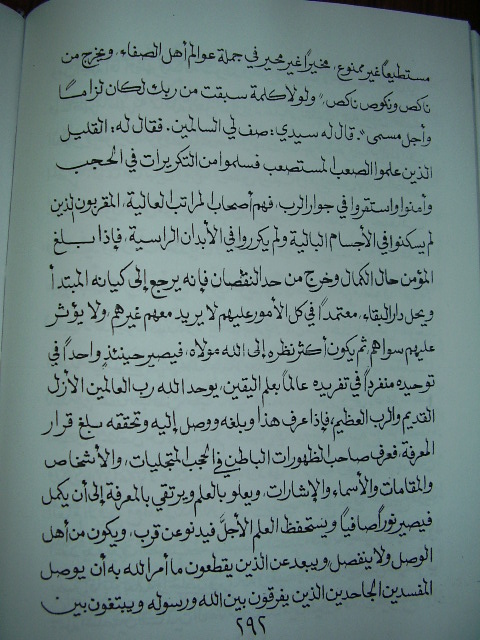 مستطيعاً غير ممنوع، مخيراً غير مجبر في جملة عوالم أهل الصفاء، ويخرج من
ناكص ونكوص ناكص، "ولولا كلمة سبقت من ربك لكان لزاماً
وأجل مسمى". قال له سيدي: صف لي السالمين. فقال له: القليل
الذين علموا الصعب المستصعب فسلموا من التكريرات في الحجب
وأمنوا واستقروا في جوار الرب، فهم أصحاب المراتب العالية، المقربون الذين
لم يسكنوا في الأجسام البالية ولم يكرروا في الأبدان الراسية، فإذا بلغ
المؤمن حال الكمال وخرج من حد النقصان فإنه يرجع إلى كيانه المبتدأ
ويحل دار البقاء، معتمداً في كل الأمور عليهم لا يريد معهم غيرهم، ولا يؤثر
عليهم سواهم، ثم يكون أكثر نظره إلى الله مولاه، فيصير حينئذٍ واحداً في
توحيده منفرداً في تفريده عالماً بعلم اليقين، يوحد الله رب العالمين الأزل
القديم والرب العظيم، فإذا عرف هذا وبلغه ووصل إليه وتحققه بلغ قرار
المعرفة، فعرف صاحب الظهورات الباطن في الحجب المتجليات، والأشخاص
والمقامات والأسماء والإشارات، ويعلو بالعلم ويرتقي بالمعرفة إلى أن يكمل
فيصير نوراً صافياً ويستحفظ العلم الأجلَّ فيدنو عن قرب، ويكون من أهل
الوصل ولا ينفصل، ويبعد عن الذين يقطعون ما أمر الله به أن يوصل
المفسدين الجاحدين الذين يفرقون بين الله ورسوله ويبتغون بين
٢٩٢